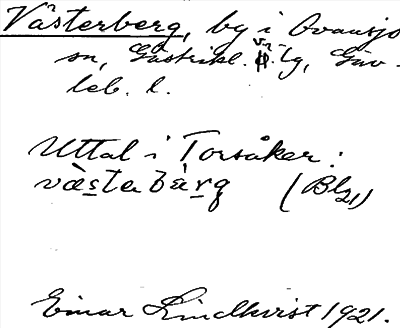 Västerberg, by i Ovansjö
sn, Gästrikl. v. tg, Gäv-
leb. l.
Uttal i Torsåker:
væ̀stabàrg (Bl21)
Einar Lindkvist 1921.